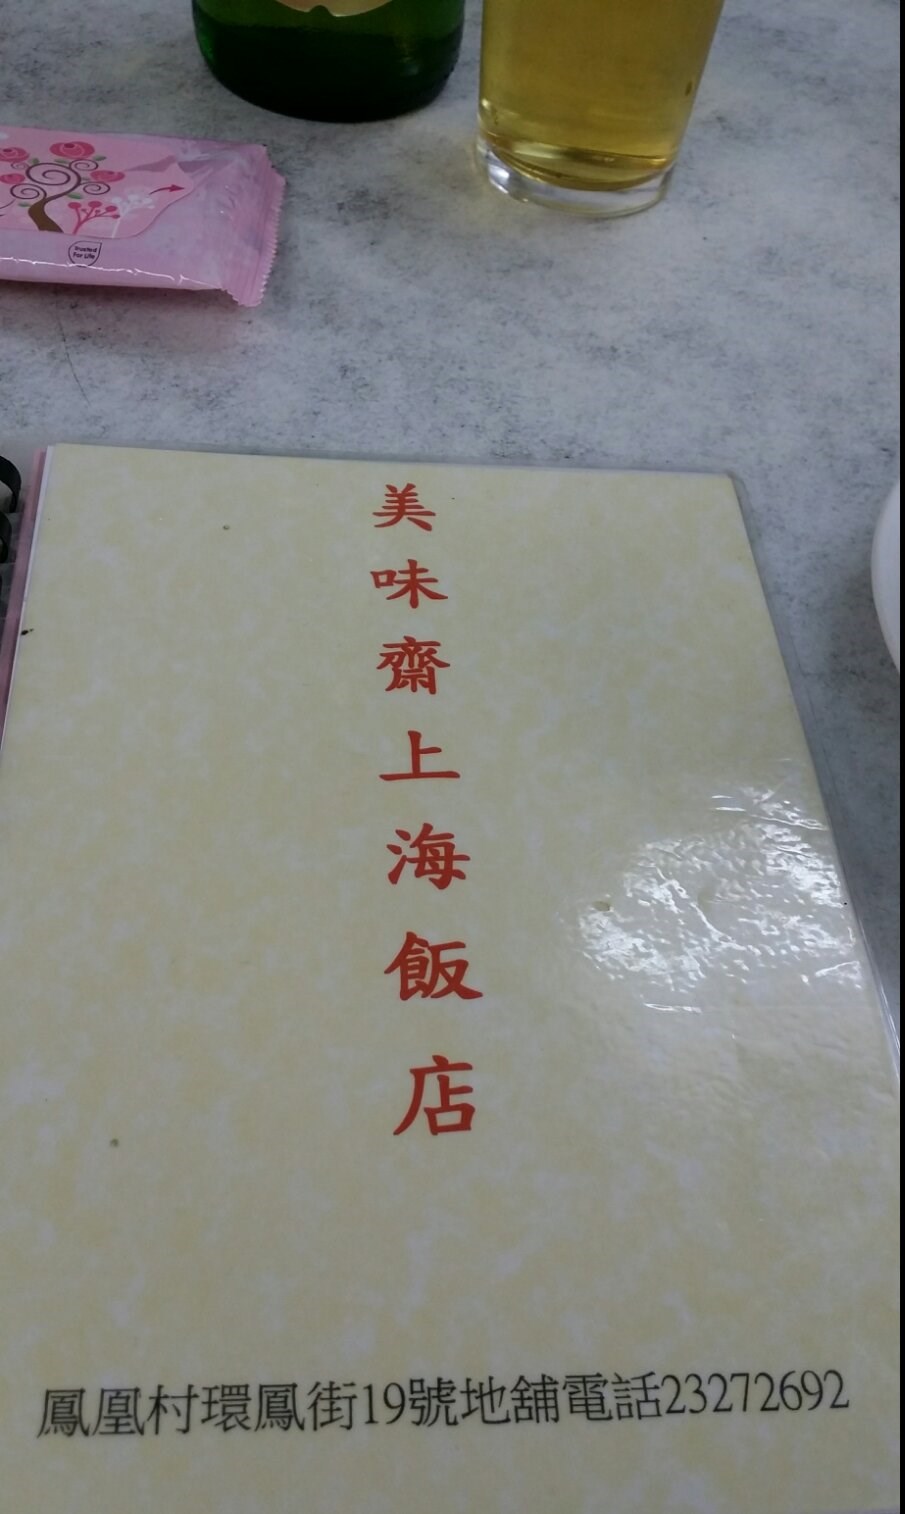 Trusted
For Life
美味齋上海飯店
鳳凰村環鳳街19號地舖電話23272692